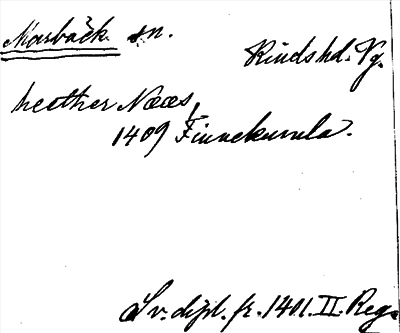 Marbäck sn.
Kinds hd. Vg.
heether Næes
1409 Finnekumla.
Sv. dipl. fr. 1401. II. Reg.